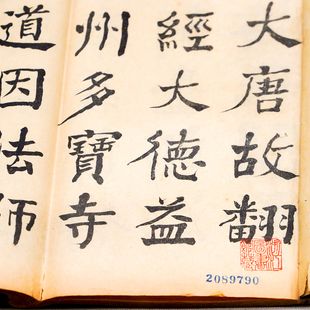 大唐故翻
經大德益
州多寶寺
道因法師
2089790